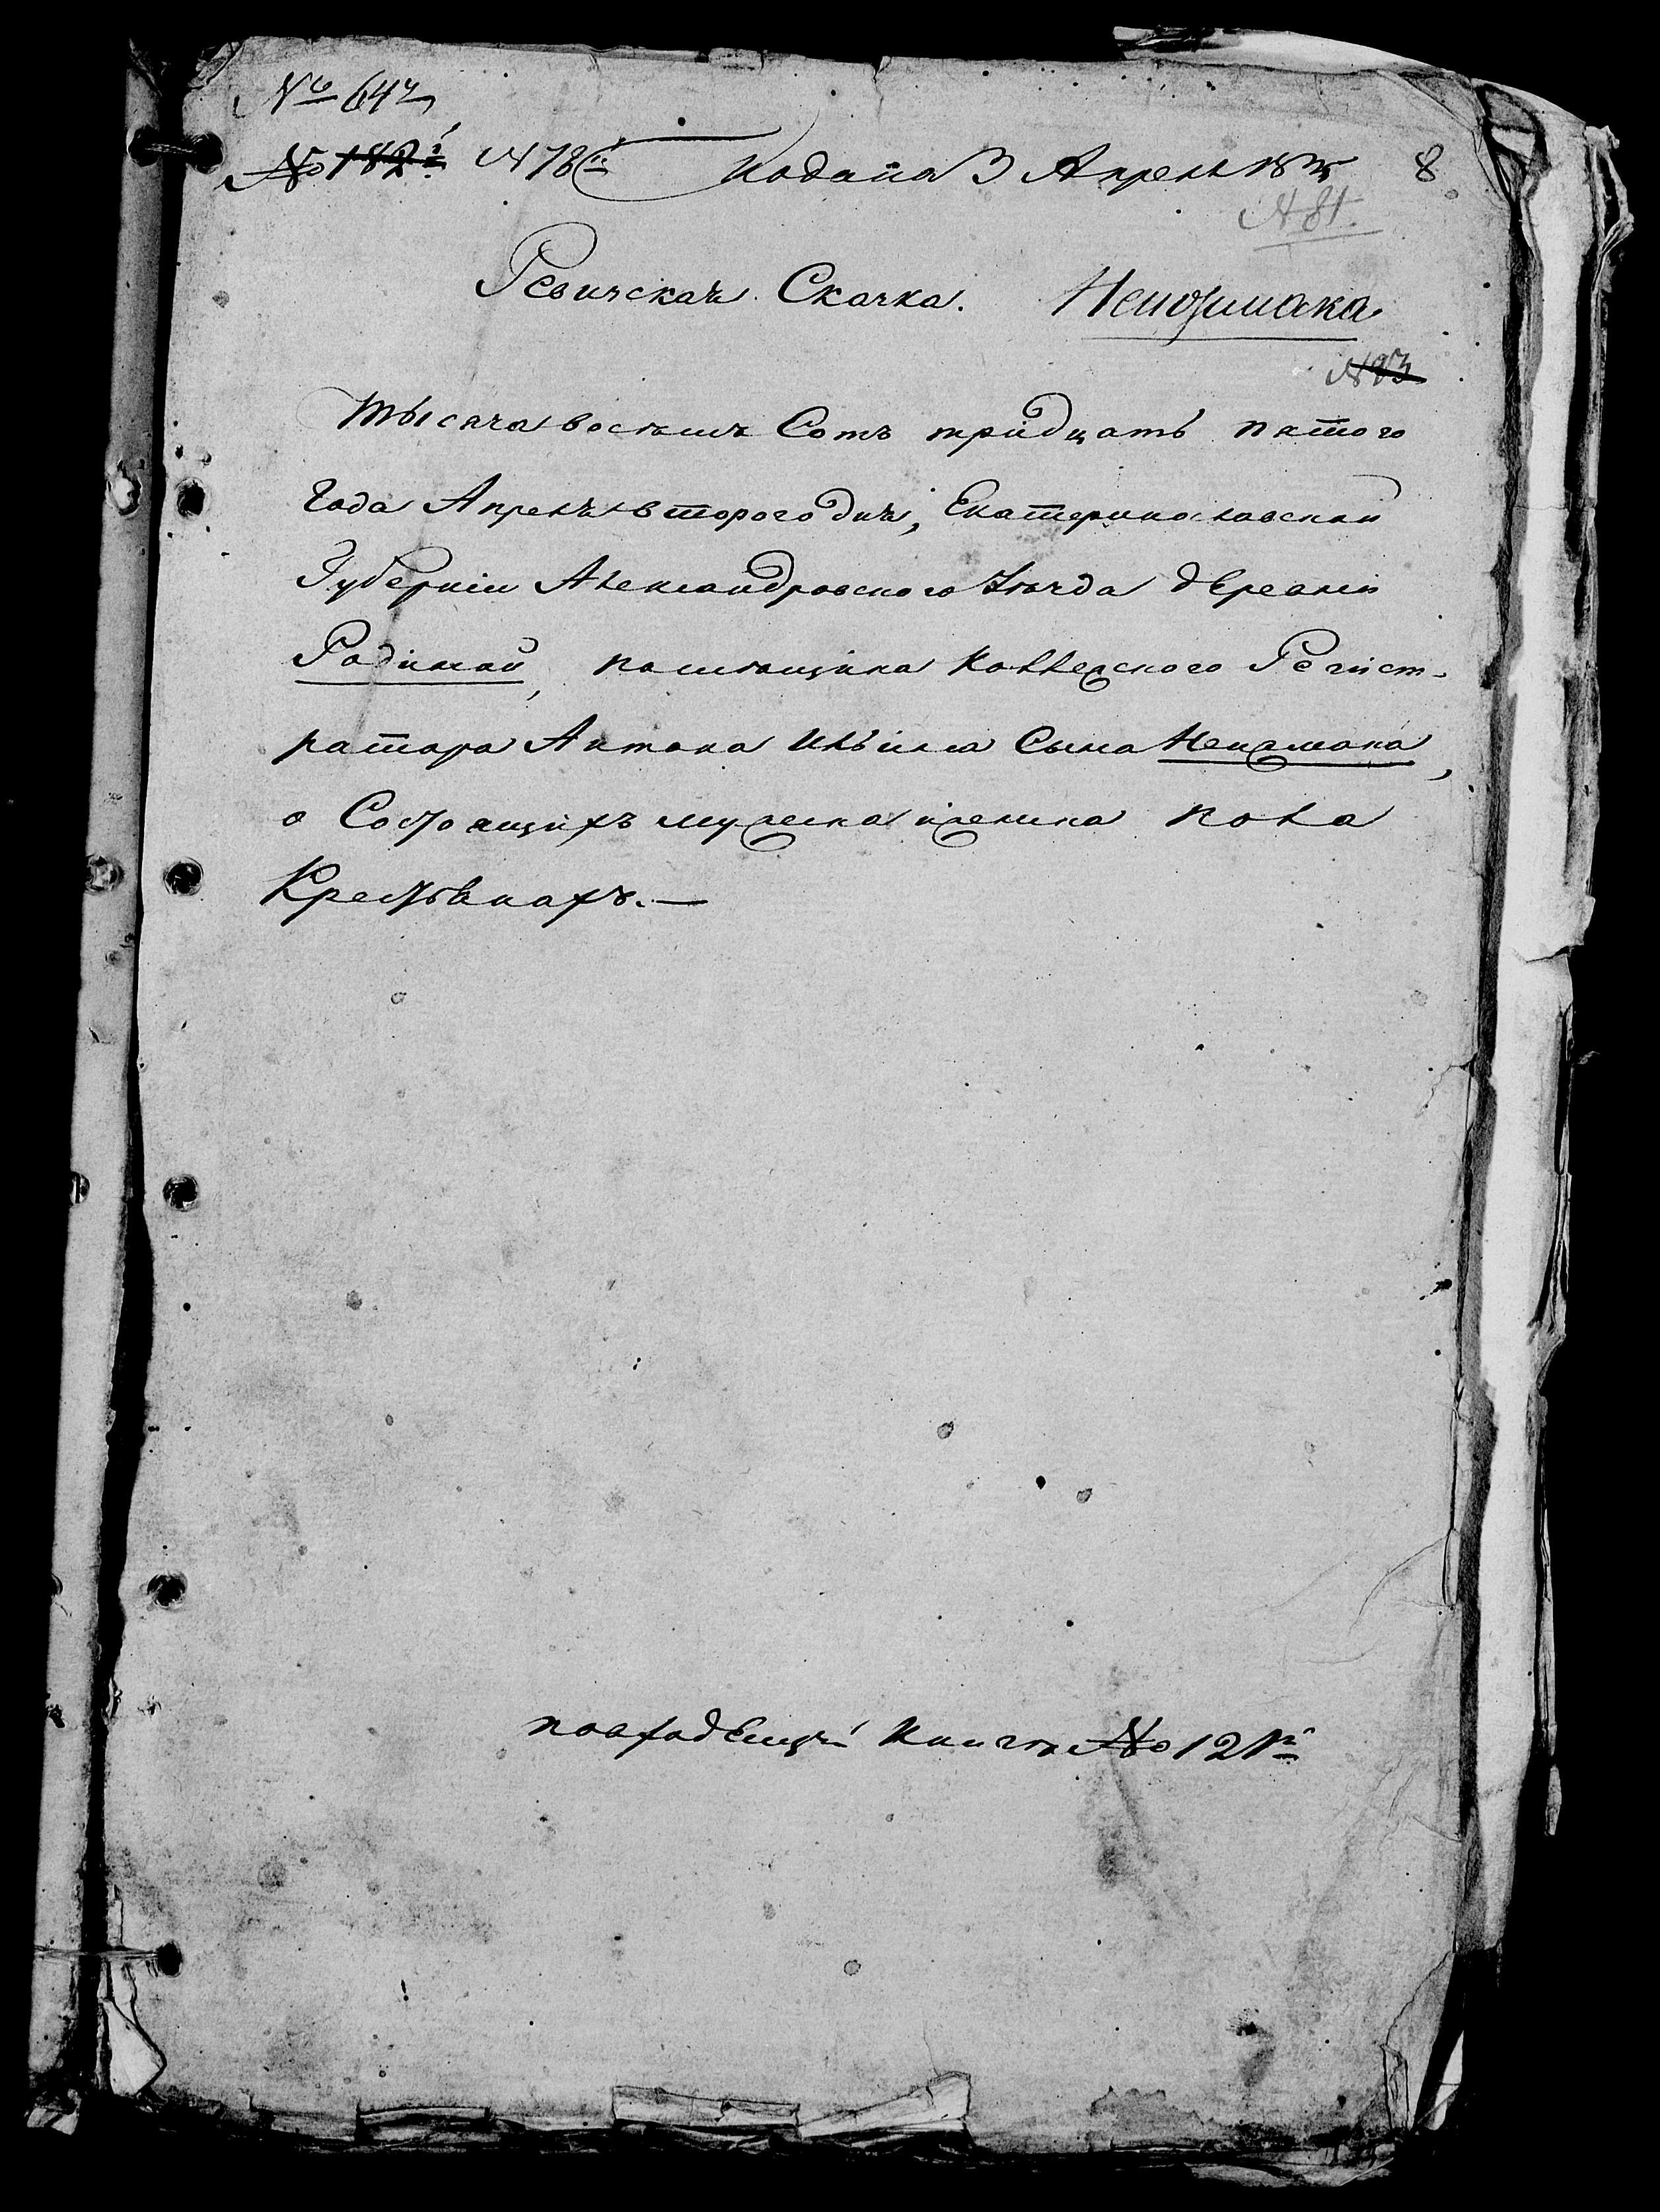 № 642
№ 182й N 78й Подана 3 Апреля 1835 8
N 81.
Ревижская Скаска.
N 93
Тысяча восемь Сотъ тридцать пятого
Года Апреля второго дня, Екатеринославской
Губерніи Александровского Уезда деревни
Родимой, помещика Коллежского Регист-
ратора Антона Ильина Сына
о Состоящихъ мужеска и женска пола
Крестьянахъ.—
повходящей книге № 121й